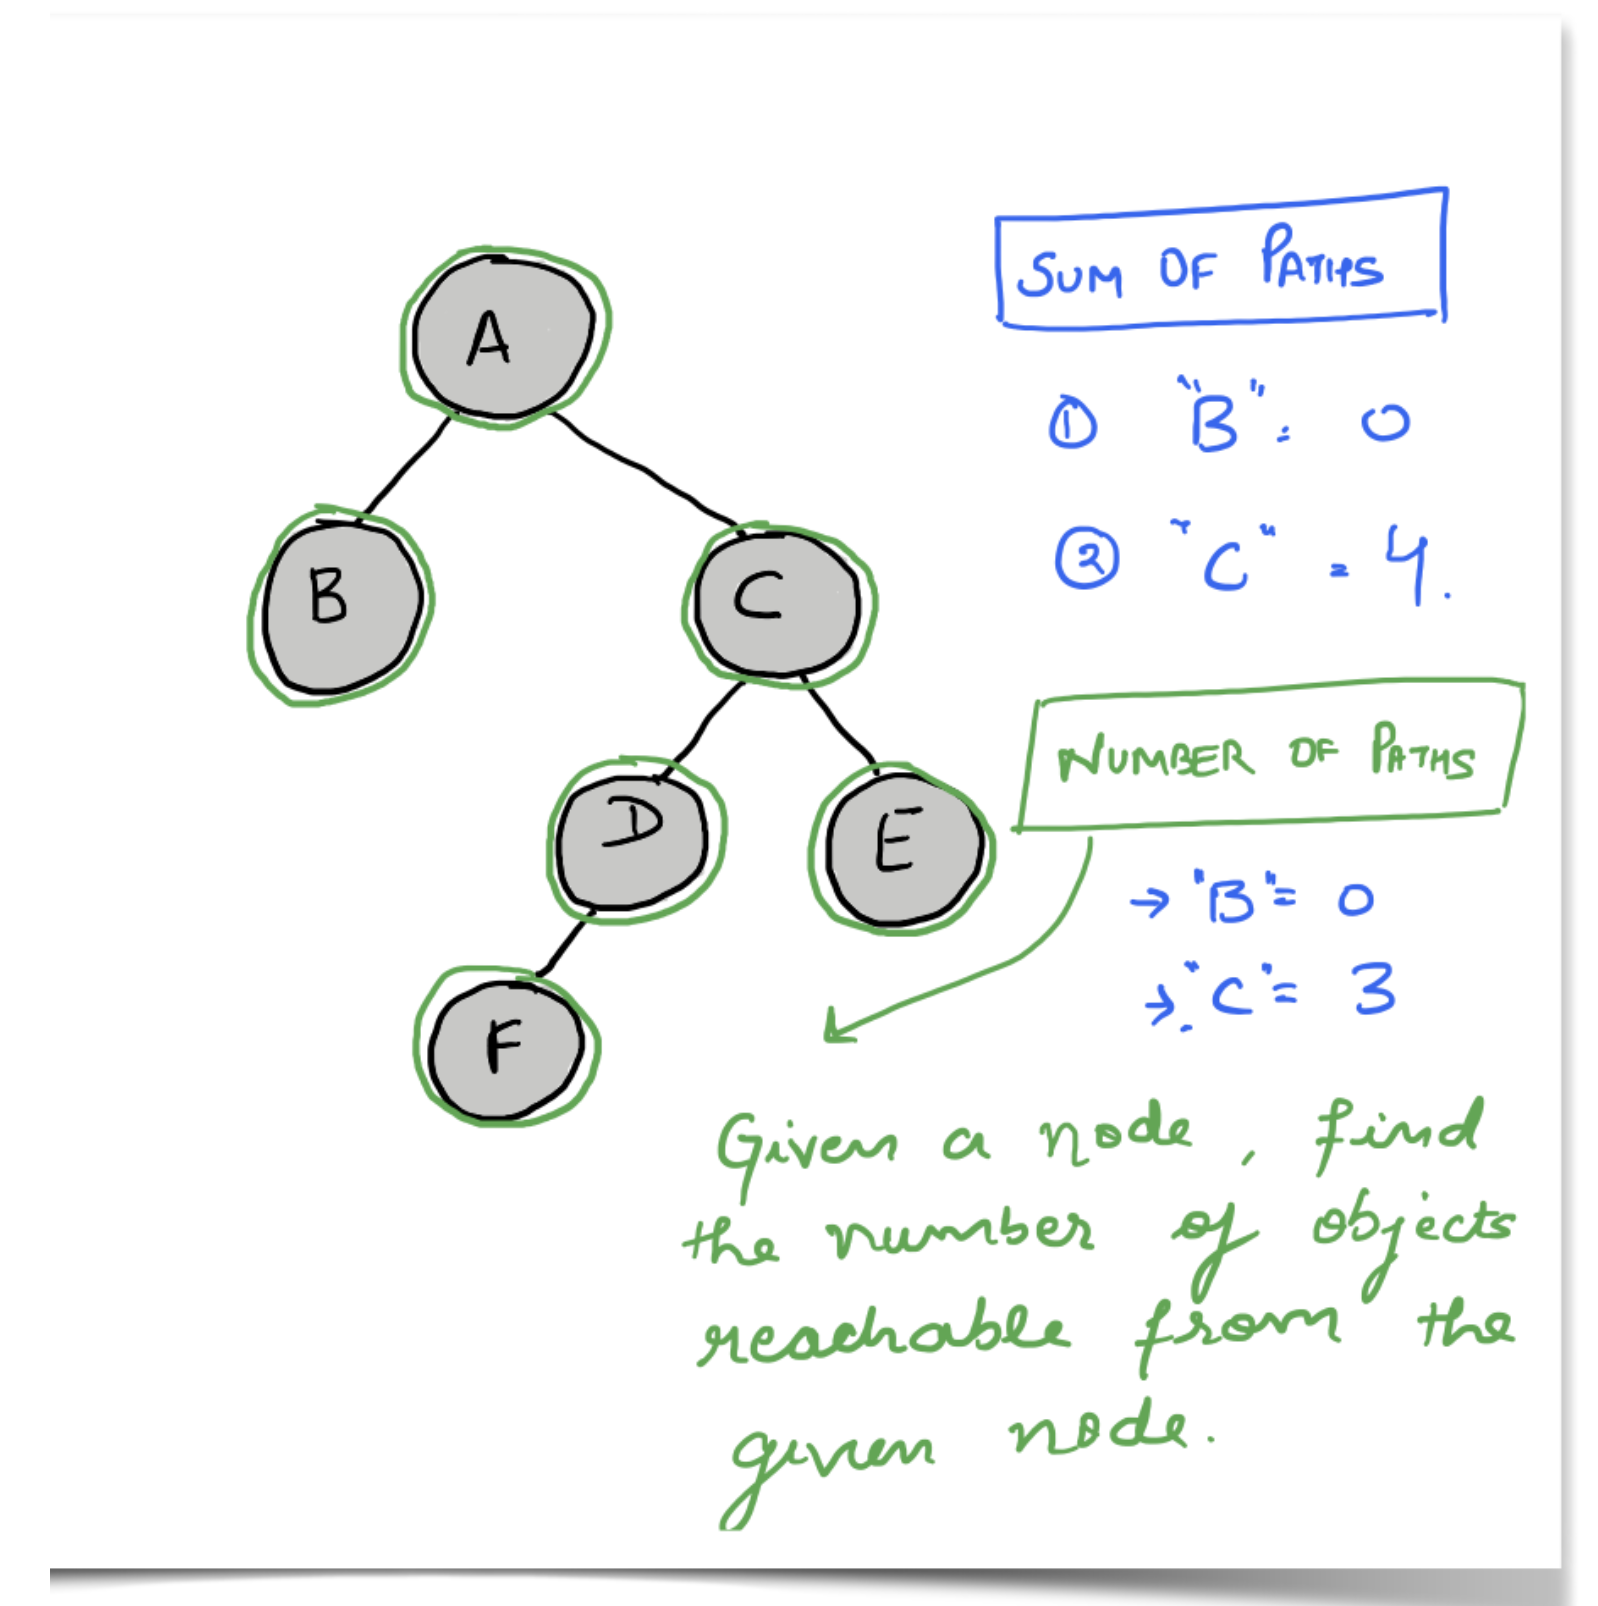 A
B
C
D
E
F
SUM OF PATHS
① "B" = 0
② "C" = 4.
NUMBER OF PATHS
→ "B" = 0
→ "C" = 3
Given a node, find
the number of objects
reachable from the
given node.